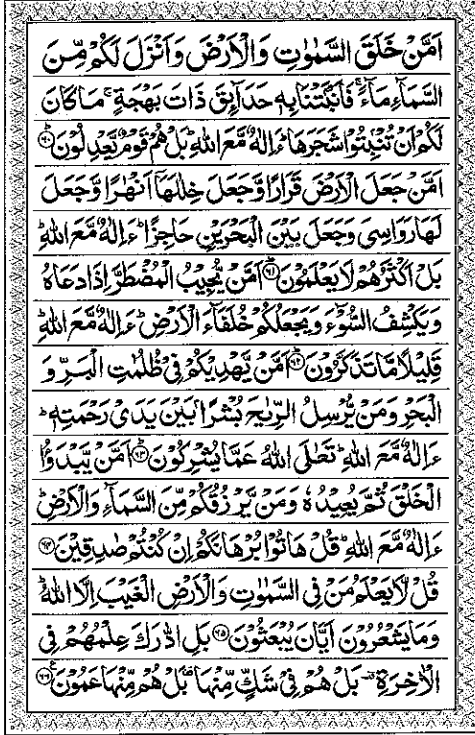 اَمَّنْ خَلَقَ السَّمٰوٰتِ وَالْاَرْضَ وَاَنْزَلَ لَكُمْ مِّنَ
السَّمَآءِ مَآءً ۚ فَاَنْۢبَتْنَا بِهٖ حَدَآئِقَ ذَاتَ بَهْجَةٍ ۚ مَا كَانَ
لَكُمْ اَنْ تُنْۢبِتُوْا شَجَرَهَا ؕ ءَاِلٰهٌ مَّعَ اللّٰهِ ؕ بَلْ هُمْ قَوْمٌ يَّعْدِلُوْنَ ؕ۶۰
اَمَّنْ جَعَلَ الْاَرْضَ قَرَارًا وَّجَعَلَ خِلٰلَهَاۤ اَنْهٰرًا وَّجَعَلَ
لَهَا رَوَاسِىَ وَجَعَلَ بَيْنَ الْبَحْرَيْنِ حَاجِزًا ؕ ءَاِلٰهٌ مَّعَ اللّٰهِ ؕ
بَلْ اَكْثَرُهُمْ لَا يَعْلَمُوْنَ ؕ۶۱ اَمَّنْ يُّجِيْبُ الْمُضْطَرَّ اِذَا دَعَاهُ
وَيَكْشِفُ السُّوْٓءَ وَيَجْعَلُكُمْ خُلَفَآءَ الْاَرْضِ ؕ ءَاِلٰهٌ مَّعَ اللّٰهِ ؕ
قَلِيْلًا مَّا تَذَكَّرُوْنَ ؕ۶۲ اَمَّنْ يَّهْدِيْكُمْ فِىْ ظُلُمٰتِ الْبَرِّ وَ
الْبَحْرِ وَمَنْ يُّرْسِلُ الرِّيٰحَ بُشْرًاۢ بَيْنَ يَدَىْ رَحْمَتِهٖ ؕ
ءَاِلٰهٌ مَّعَ اللّٰهِ ؕ تَعٰلَى اللّٰهُ عَمَّا يُشْرِكُوْنَ ؕ۶۳ اَمَّنْ يَّبْدَؤُا
الْخَلْقَ ثُمَّ يُعِيْدُهٗ وَمَنْ يَّرْزُقُكُمْ مِّنَ السَّمَآءِ وَالْاَرْضِ ؕ
ءَاِلٰهٌ مَّعَ اللّٰهِ ؕ قُلْ هَاتُوْا بُرْهَانَكُمْ اِنْ كُنْتُمْ صٰدِقِيْنَ ۶۴
قُلْ لَّا يَعْلَمُ مَنْ فِى السَّمٰوٰتِ وَالْاَرْضِ الْغَيْبَ اِلَّا اللّٰهُ ؕ
وَمَا يَشْعُرُوْنَ اَيَّانَ يُبْعَثُوْنَ ۶۵ بَلِ ادّٰرَكَ عِلْمُهُمْ فِى
الْاٰخِرَةِ ۫ بَلْ هُمْ فِىْ شَكٍّ مِّنْهَا ۫ بَلْ هُمْ مِّنْهَا عَمُوْنَ ۶۶